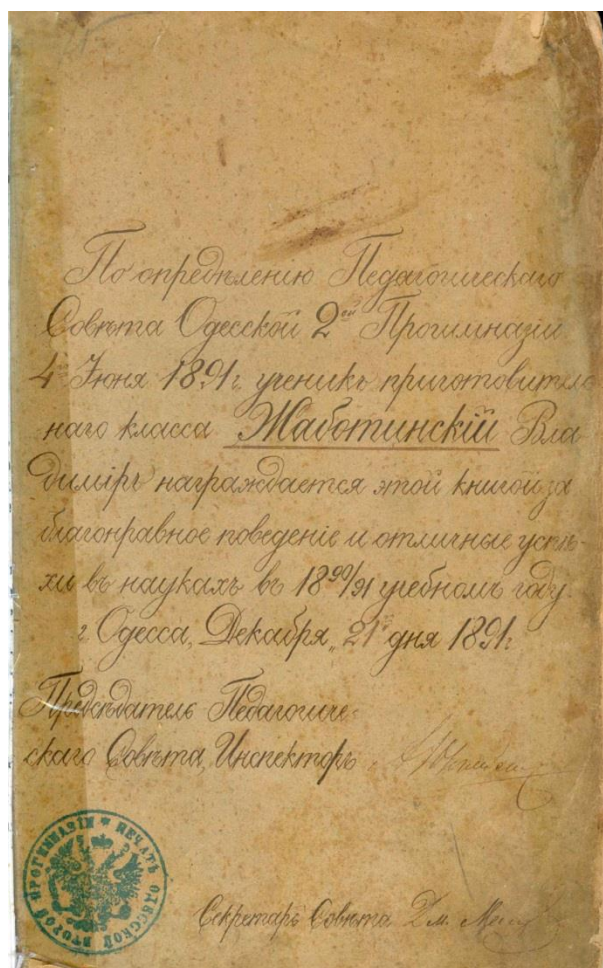 По опредѣленію Педагогическаго
Совѣта Одесской 2ой Прогимназіи
4 Іюня 1891 г. ученикъ приготовитель
наго класса Жаботинскій Вла
диміръ награждается этой книгой за
благонравное поведеніе и отличные успѣ-
хи въ наукахъ въ 1890/91 учебномъ году.
г. Одесса, Декабря „21" дня 1891 г.
Предсѣдатель Педагогиче-
скаго Совѣта, Инспекторъ
ПЕЧАТЬ ОДЕССКОЙ ВТОРОЙ ПРОГИМНАЗІИ
Секретарь Совѣта Дм.